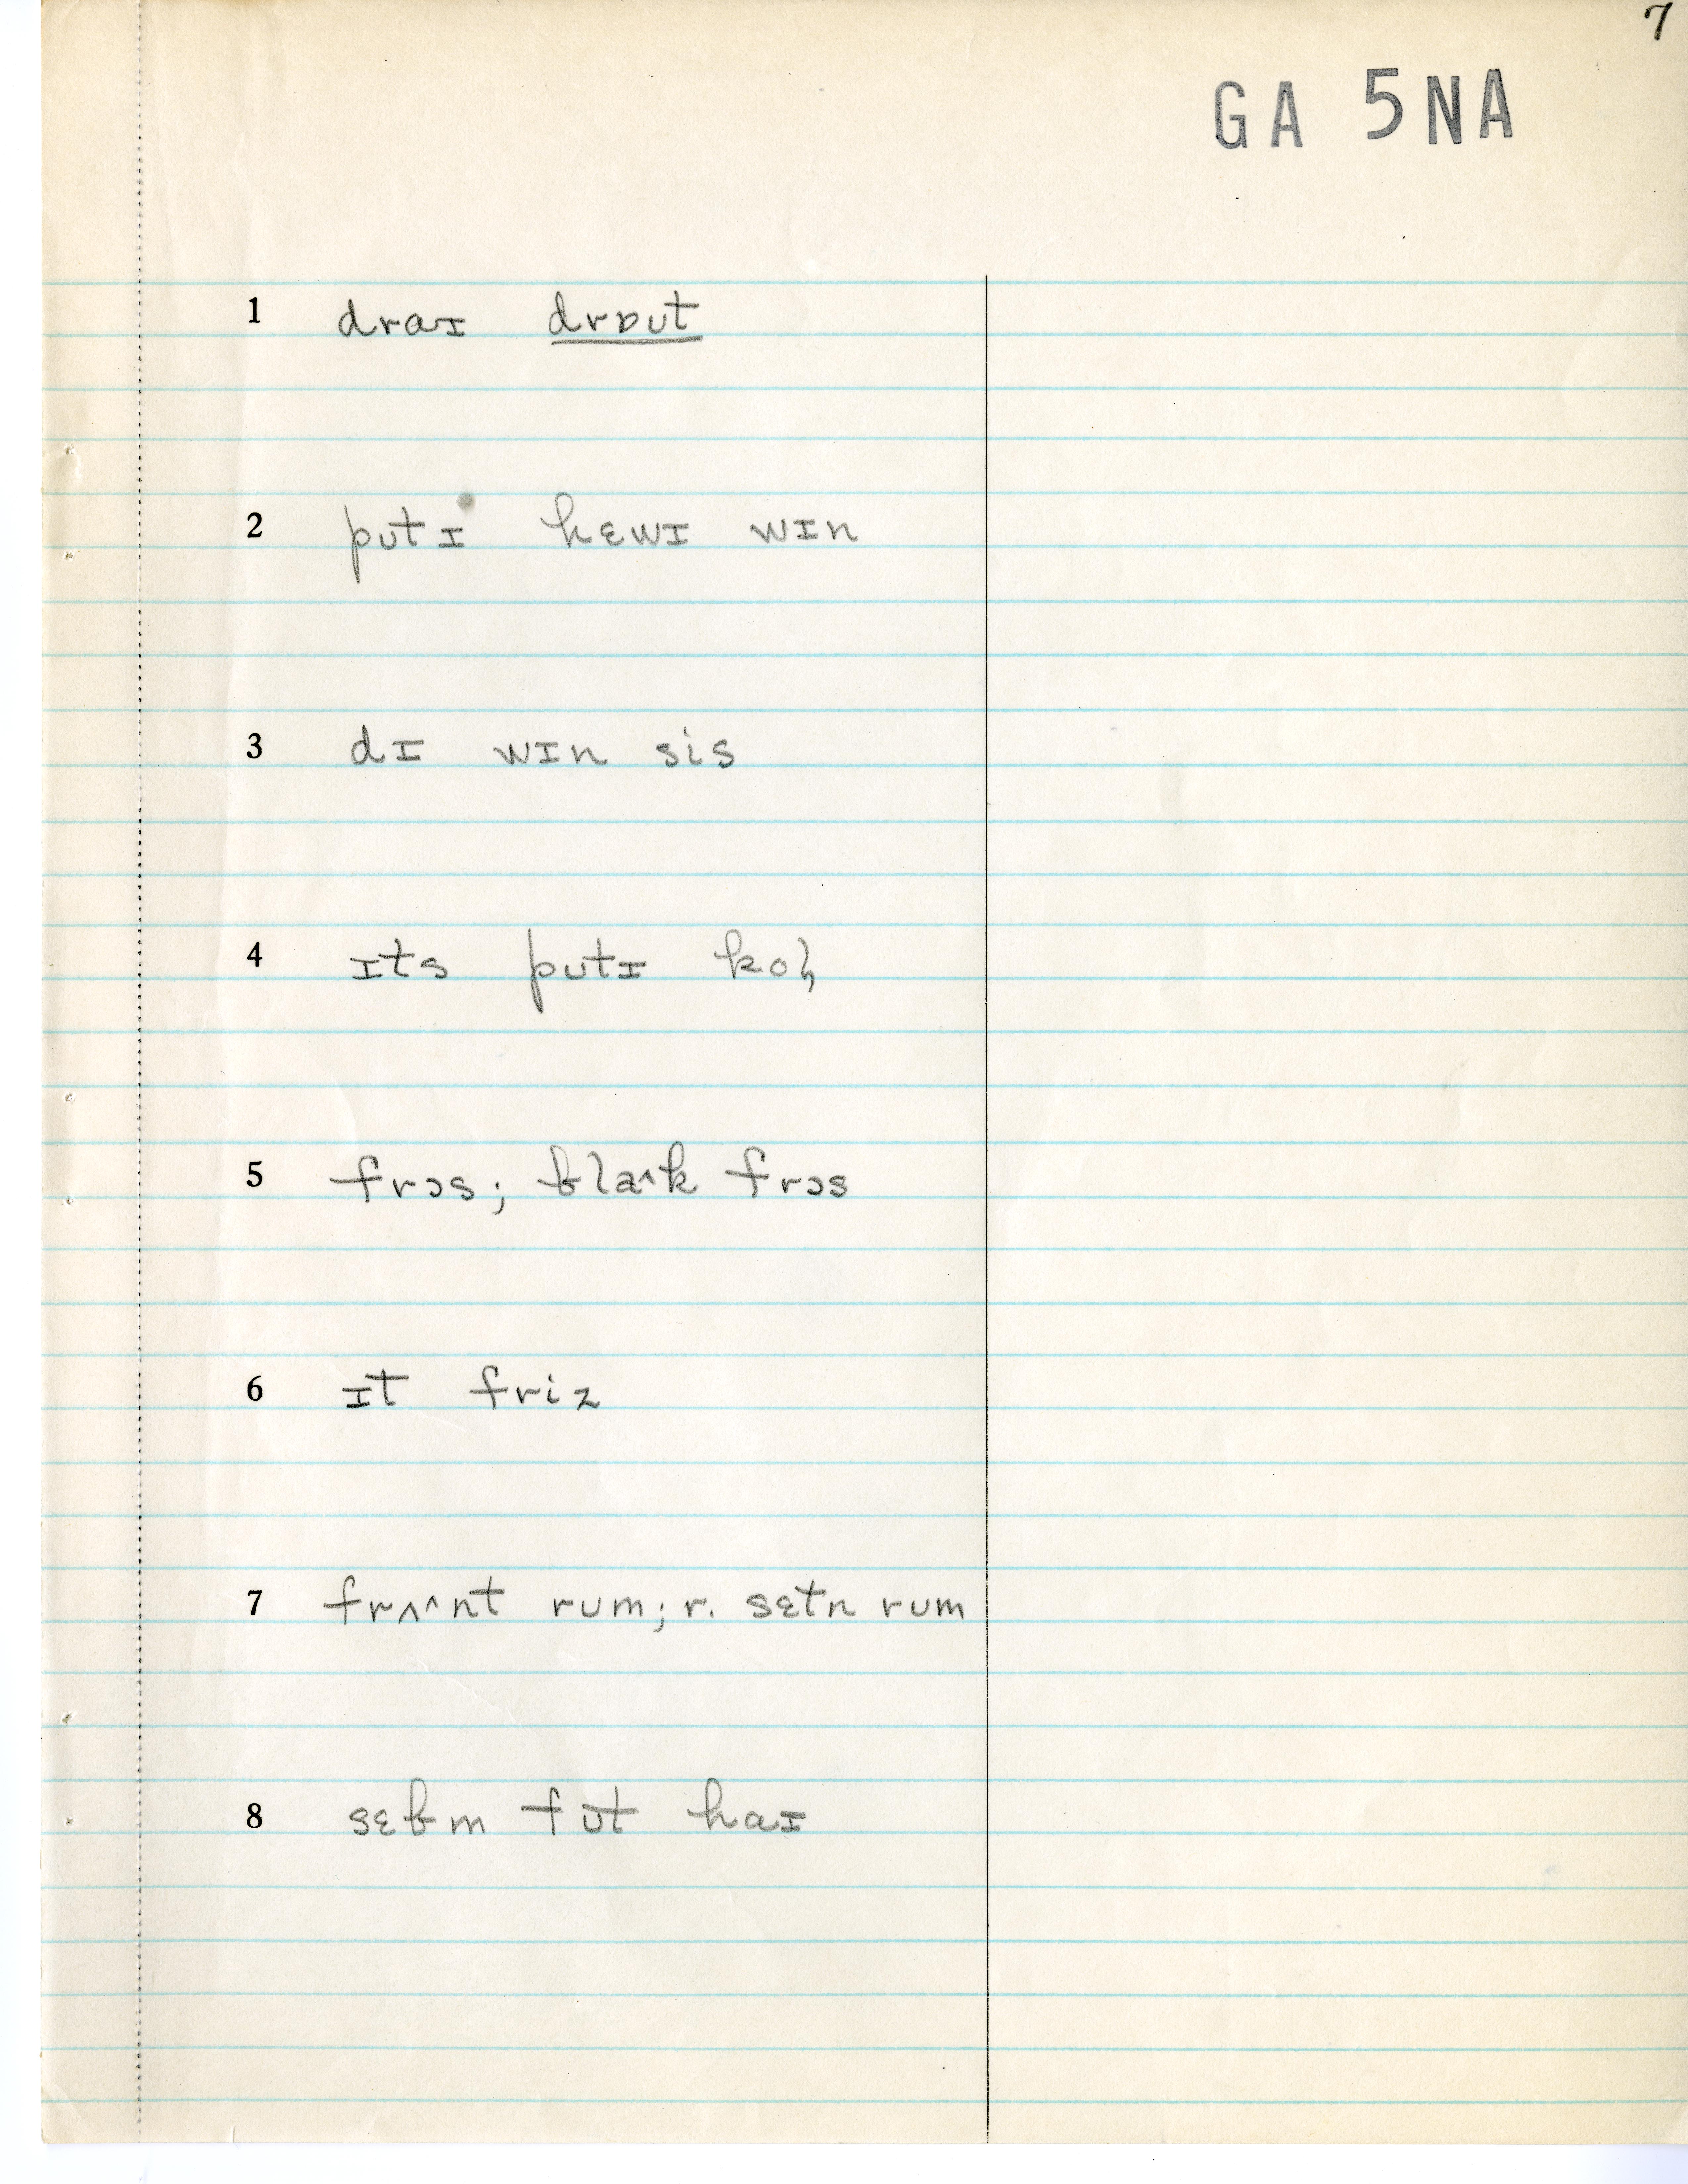 7
GA 5NA
1 draɪ drɒut
2 putɪ hɛwɪ wɪn
3 dɪ wɪn sis
4 ɪts putɪ kol̥
5 frɔs; bla^k frɔs
6 ɪt friz
7 frʌ^nt rum; r. sɛtn rum
8 sɛbm fut haɪ